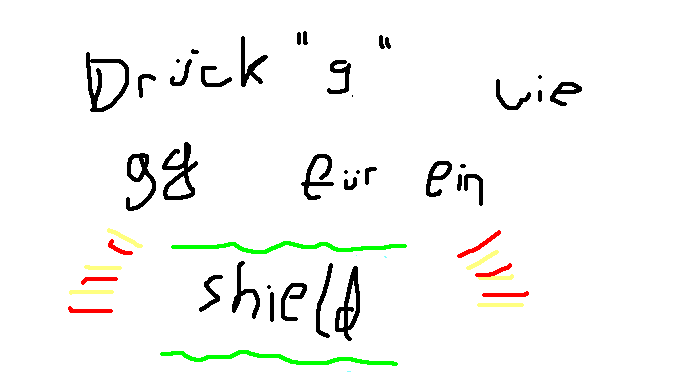 Drück "g" wie
gg für ein
shield